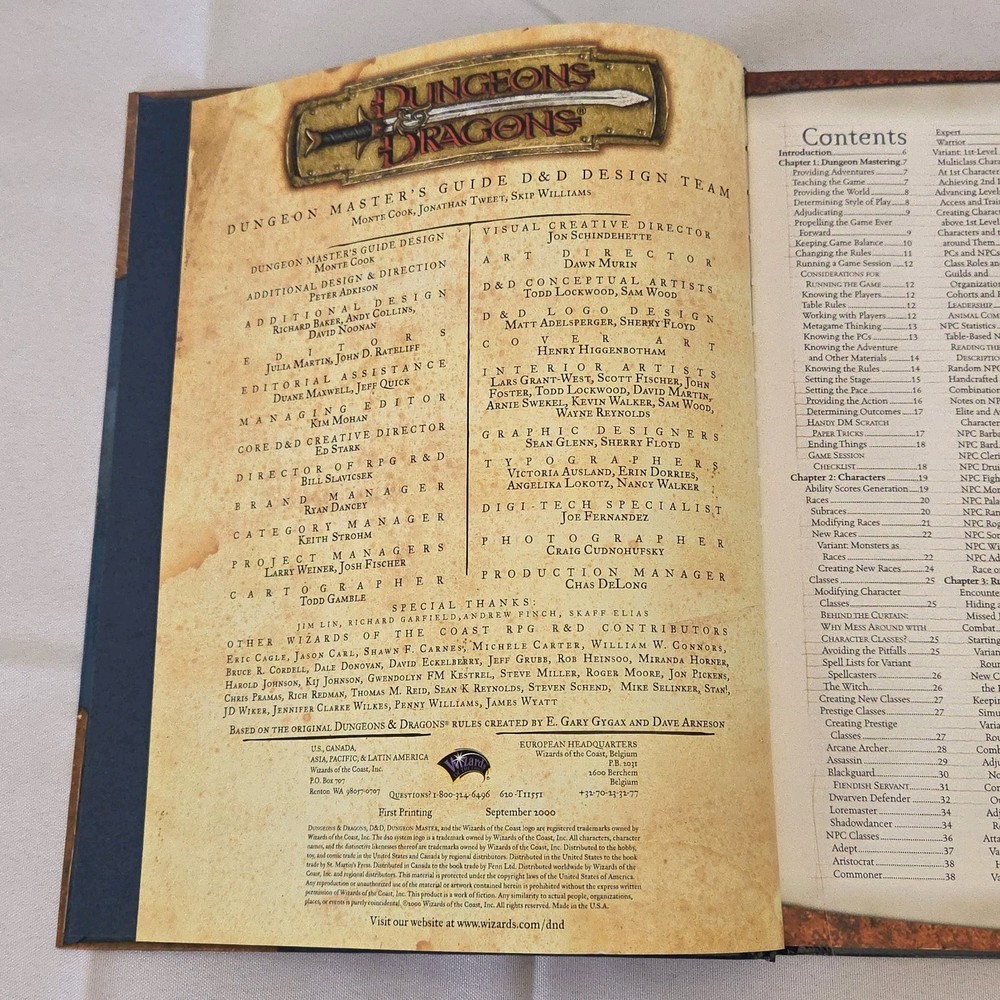 DUNGEONS
&
DRAGONS®
DUNGEON MASTER'S GUIDE D&D DESIGN TEAM
MONTE COOK, JONATHAN TWEET, SKIP WILLIAMS
DUNGEON MASTER'S GUIDE DESIGN
MONTE COOK
ADDITIONAL DESIGN & DIRECTION
PETER ADKISON
ADDITIONAL DESIGN
RICHARD BAKER, ANDY COLLINS,
DAVID NOONAN
EDITORS
JULIA MARTIN, JOHN D. RATELIFF
EDITORIAL ASSISTANCE
DUANE MAXWELL, JEFF QUICK
MANAGING EDITOR
KIM MOHAN
CORE D&D CREATIVE DIRECTOR
ED STARK
DIRECTOR OF RPG R&D
BILL SLAVICSEK
BRAND MANAGER
RYAN DANCEY
CATEGORY MANAGER
KEITH STROHM
PROJECT MANAGERS
LARRY WEINER, JOSH FISCHER
CARTOGRAPHER
TODD GAMBLE
VISUAL CREATIVE DIRECTOR
JON SCHINDEHETTE
ART DIRECTOR
DAWN MURIN
D&D CONCEPTUAL ARTISTS
TODD LOCKWOOD, SAM WOOD
D&D LOGO DESIGN
MATT ADELSPERGER, SHERRY FLOYD
COVER ART
HENRY HIGGENBOTHAM
INTERIOR ARTISTS
LARS GRANT-WEST, SCOTT FISCHER, JOHN
FOSTER, TODD LOCKWOOD, DAVID MARTIN,
ARNIE SWEKEL, KEVIN WALKER, SAM WOOD,
WAYNE REYNOLDS
GRAPHIC DESIGNERS
SEAN GLENN, SHERRY FLOYD
TYPOGRAPHERS
VICTORIA AUSLAND, ERIN DORRIES,
ANGELIKA LOKOTZ, NANCY WALKER
DIGI-TECH SPECIALIST
JOE FERNANDEZ
PHOTOGRAPHER
CRAIG CUDNOHUFSKY
PRODUCTION MANAGER
CHAS DELONG
SPECIAL THANKS:
JIM LIN, RICHARD GARFIELD, ANDREW FINCH, SKAFF ELIAS
OTHER WIZARDS OF THE COAST RPG R&D CONTRIBUTORS
ERIC CAGLE, JASON CARL, SHAWN F. CARNES, MICHELE CARTER, WILLIAM W. CONNORS,
BRUCE R. CORDELL, DALE DONOVAN, DAVID ECKELBERRY, JEFF GRUBB, ROB HEINSOO, MIRANDA HORNER,
HAROLD JOHNSON, KIJ JOHNSON, GWENDOLYN FM KESTREL, STEVE MILLER, ROGER MOORE, JON PICKENS,
CHRIS PRAMAS, RICH REDMAN, THOMAS M. REID, SEAN K REYNOLDS, STEVEN SCHEND, MIKE SELINKER, STAN!,
JD WIKER, JENNIFER CLARKE WILKES, PENNY WILLIAMS, JAMES WYATT
BASED ON THE ORIGINAL DUNGEONS & DRAGONS® RULES CREATED BY E. GARY GYGAX AND DAVE ARNESON
U.S., CANADA,
ASIA, PACIFIC, & LATIN AMERICA
Wizards of the Coast, Inc.
P.O. Box 707
Renton WA 98057-0707
Wizards
QUESTIONS? 1-800-324-6496
620-T11551
EUROPEAN HEADQUARTERS
Wizards of the Coast, Belgium
P.B. 2031
2600 Berchem
Belgium
+32-70-23-32-77
First Printing September 2000
DUNGEONS & DRAGONS, D&D, DUNGEON MASTER, and the Wizards of the Coast logo are registered trademarks owned by
Wizards of the Coast, Inc. The d20 system logo is a trademark owned by Wizards of the Coast, Inc. All characters, character
names, and the distinctive likenesses thereof are trademarks owned by Wizards of the Coast, Inc. Distributed to the hobby,
toy, and comic trade in the United States and Canada by regional distributors. Distributed in the United States to the book
trade by St. Martin's Press. Distributed in Canada to the book trade by Fenn Ltd. Distributed worldwide by Wizards of the
Coast, Inc. and regional distributors. This material is protected under the copyright laws of the United States of America.
Any reproduction or unauthorized use of the material or artwork contained herein is prohibited without the express written
permission of Wizards of the Coast, Inc. This product is a work of fiction. Any similarity to actual people, organizations,
places, or events is purely coincidental. ©2000 Wizards of the Coast, Inc. All rights reserved. Made in the U.S.A.
Visit our website at www.wizards.com/dnd
Contents
Introduction 6
Chapter 1: Dungeon Mastering 7
Providing Adventures 7
Teaching the Game 7
Providing the World 8
Determining Style of Play 8
Adjudicating 9
Propelling the Game Ever
Forward 9
Keeping Game Balance 10
Changing the Rules 11
Running a Game Session 12
CONSIDERATIONS FOR
RUNNING THE GAME 12
Knowing the Players 12
Table Rules 12
Working with Players 12
Metagame Thinking 13
Knowing the PCs 13
Knowing the Adventure
and Other Materials 14
Knowing the Rules 14
Setting the Stage 15
Setting the Pace 16
Providing the Action 16
Determining Outcomes 17
HANDY DM SCRATCH
PAPER TRICKS 17
Ending Things 18
GAME SESSION
CHECKLIST 18
Chapter 2: Characters 19
Ability Scores Generation 19
Races 20
Subraces 20
Modifying Races 21
New Races 22
Variant: Monsters as
Races 22
Creating New Races 24
Classes 25
Modifying Character
Classes 25
BEHIND THE CURTAIN:
WHY MESS AROUND WITH
CHARACTER CLASSES? 25
Avoiding the Pitfalls 25
Spell Lists for Variant
Spellcasters 26
The Witch 26
Creating New Classes 27
Prestige Classes 27
Creating Prestige
Classes 27
Arcane Archer 28
Assassin 29
Blackguard 30
FIENDISH SERVANT 31
Dwarven Defender 32
Loremaster 34
Shadowdancer 34
NPC Classes 36
Adept 37
Aristocrat 38
Commoner 38
Expert
Warrior
Variant: 1st-Level
Multiclass Chara
At 1st Character
Achieving 2nd L
Advancing Levels
Access and Train
Creating Charac
above 1st Level
Characters and t
around Them
PCs and NPCs
Class Roles an
Guilds and
Organizatio
Cohorts and F
LEADERSHIP
ANIMAL COM
NPC Statistics
Table-Based N
READING THE
DESCRIPTIO
Random NPC
Handcrafted
Combination
Notes on NP
Elite and A
Character
NPC Barba
NPC Bard
NPC Cleri
NPC Drui
NPC Figh
NPC Mon
NPC Pala
NPC Ran
NPC Rog
NPC Sor
NPC Wi
NPC Ad
Race o
Chapter 3: Ru
Encounte
Hiding a
Missed
Combat
Starting
Varian